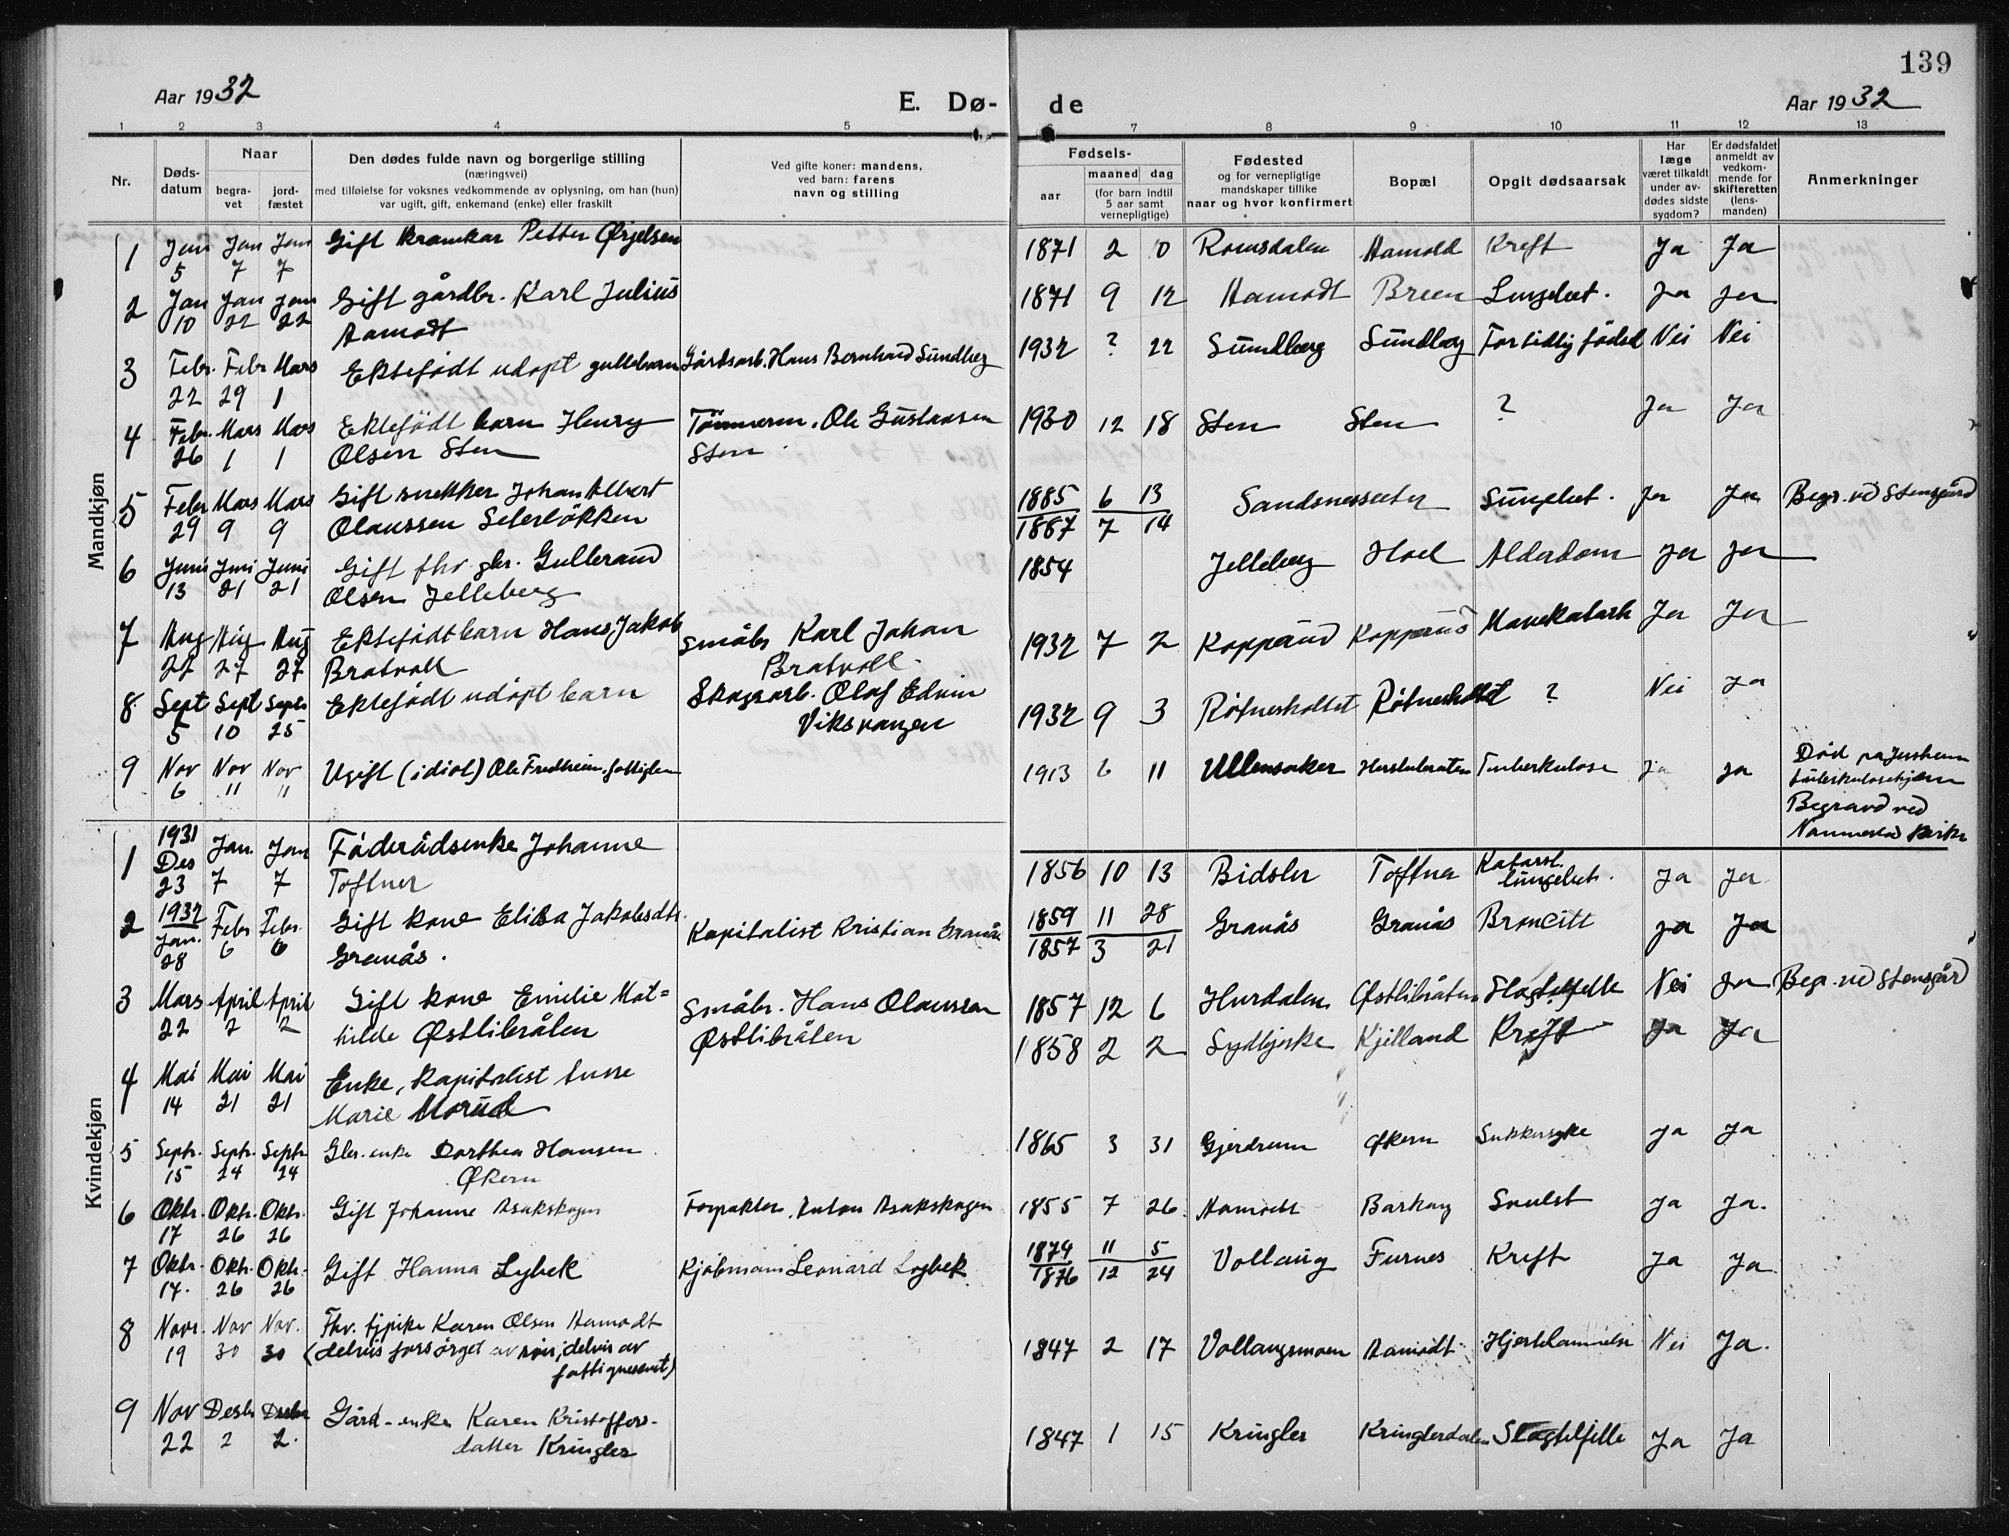 139
Aar 1932
E. Dø-
de
Aar 1932
1 2 3 4 5 6 7 8 9 10 11 12 13
Nr.
Døds-
datum
Naar
begra-
vet
jord-
fæstet
Den dødes fulde navn og borgerlige stilling
(næringsvei)
med tilføielse for voksnes vedkommende av oplysning, om han (hun)
var ugift, gift, enkemand (enke) eller fraskilt
Ved gifte koner: mandens,
ved barn: farens
navn og stilling
Fødsels-
aar
maaned dag
(for barn indtil
5 aar samt
vernepligtige)
Fødested
og for vernepligtige
mandskaper tillike
naar og hvor konfirmert
Bopæl
Opgit dødsaarsak
Har
læge
været tilkaldt
under av-
dødes sidste
sygdom?
Er dødsfaldet
anmeldt av
vedkom-
mende for
skifteretten
(lens-
manden)
Anmerkninger
Mandkjøn
1 Jan Jan Jan Gift Petter 1871 2 0 Romsdalen Aamold Kreft Ja Ja
5 7 7
2 Jan Jan Jan Gift gårdbr. Karl Julius 1871 9 12 Aamodt Breen Lungebet. Ja Ja
10 22 22 Aamodt
3 Febr. Febr Mars Ektefödt udöpt guttebarn Gårdsarb. Hans Bernhard Sundberg 1932 ? 22 Sundberg Sundberg For tidlig föded Nei Nei
22 29 1
4 Febr. Mars Mars Ektefödt barn Henry Tömmerm. Ole Gustavsen 1930 12 18 Sten Sten ? Ja Ja
26 1 1 Olsen Sten Sten
5 Febr Mars Mars Gift snekker Johan Albert 1885 6 13 Sandsnesseter Lungebet. Ja Ja Begr. ved Stensgård
29 9 9 Olaussen Seterlökken 1887 7 14
6 Juni Juni Juni Gift fhv. gbr. Gullerand 1854 Jelleberg Hoel Alderdom Ja Ja
13 21 21 Olsen Jelleberg
7 Aug Aug Aug Ektefödt barn Hans Jakob Småbr Karl Johan 1932 7 2 Kopperud Kopperud Mavekatarh Ja Ja
22 27 27 Bratvoll Bratvoll.
8 Sept Sept Septr Ektefödt udöpt barn Skogsarb. Olaf Edvin 1932 9 3 Rötnesholtet Rötnesholtet ? Nei Ja
5 10 25 Viksvangen
9 Nov Nov Nov Ugift (idiot) Ole Fredheim, fattiglem 1913 6 11 Ullensaker Tuberkulose Ja Ja Död på Jessheim
6 11 11 tuberkulosehjem
Begravd ved
Nannestad kirke
Kvindekjøn
1 1931 Des Jan. Jan Föderådsenke Johanne 1856 10 13 Bidsler Toftner Katarrl. lungebet. Ja Ja
23 7 7 Toftner
2 1932 Jan. Febr Febr. Gift kone Elisa Jakobsdtr. Kapitalist Kristian Granås 1859 11 28 Granås Granås Broncitt Ja Ja
28 6 6 Granås. 1857 3 21
3 Mars April April Gift kone Emilie Mat= Småbr. Hans Olaussen 1857 12 6 Hurdalen Østlibråten Slagtilfelle Nei Ja Begr. ved Stensgård
22 2 2 hilde Østlibråten Østlibråten
4 Mai Mai Mai Enke, kapitalist 1858 2 2 Kjelland Kreft Ja Ja
14 21 21 Marie Morud
5 Septr. Septr. Septr Gbr. enke Dorthea Hansen 1865 3 31 Gjerdrum Økern Sukkersyke Ja Ja
15 24 24 Økern
6 Oktr. Oktr. Oktr. Gift Johanne Asakskogen Forpakter Anton Asakskogen 1855 7 26 Aamodt Ja Ja.
17 26 26
7 Oktr. Oktr. Oktr. Gift Hanna Lybek Kjöbmann Leonard Lybek 1874 11 5 Vollaug Furnes Kreft Ja Ja
17. 26 26 1876 12 24
8 Novr. Nov Nov. Fhv. Karen Olsen Aamodt 1847 2 17 Vollaugsmoen Aamodt Hjertelammelse Nei Ja.
19 30 30 (delvis forsörget av delvis av
fattigvesenet)
9 Nov Desbr Desbr Gård-enke Karen Kristoffers- 1847 1 15 Kringler Kringlerdalen Slagtilfelle Ja Ja
22 2 2. datter Kringler